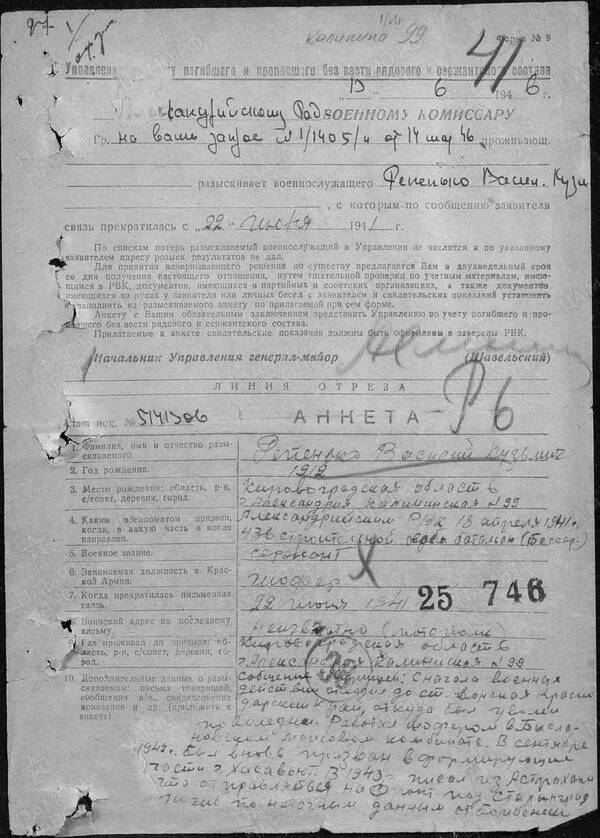 27
1/1г
Калинина 99
41
Форма № 9
Управлени погибшего и пропавшего без вести рядового и сержантского состава
6 1946 г.
ВОЕННОМУ КОМИССАРУ
Гр. на ваш запрос №1/1405/н от 14 мар 46 проживающ.
разыскивает военнослужащего Репенько Васил. Кузм
, с которым по сообщению заявителя
связь прекратилась с „22" июня 1941 г.
По спискам потерь разыскиваемый военнослужащий в Управлении не числится и по указанному
заявителем адресу розыск результатов не дал.
Для принятия исчерпывающего решения по существу предлагается Вам в двухнедельный срок
со дня получения настоящего отношения, путем тщательной проверки по учетным материалам, имею-
щимся в РВК, документов, имеющихся в партийных и советских организациях, а также документов
имеющихся на руках у заявителя или личных бесед с заявителем и свидетельских показаний установить
и заполнить на разыскиваемого анкету по прилагаемой при сем форме.
Анкету с Вашим обязательным заключением представить Управлению по учету погибшего и про-
павшего без вести рядового и сержантского состава.
Прилагаемые к анкете свидетельские показания должны быть оформлены и заверены РВК.
Начальник Управления генерал-майор (Шавельский)
ЛИНИЯ ОТРЕЗА
исх. № 5141306
АНКЕТА
Р6
1. Фамилия, имя и отчество разы-
скиваемого. Репенько Василий Кузьмич
2. Год рождения. 1912
3. Место рождения: область, р-н,
с/совет, деревня, город. Кировоградская область
г. Александрия Калининская №99
4. Каким военкоматом призван,
когда, в какую часть и когда
направлен. Александрийским РВК 18 апреля 1941г.
436 строительной батальон (Бессар.)
5. Военное звание. сержант
6. Занимаемая должность в Крас-
ной Армии. шофер
7. Когда прекратилась письменная
связь. 22 июня 1941
25 746
8. Воинский адрес по последнему
письму. неизвестно
9. Где проживал до призыва: об-
ласть, р-н, с/совет, деревня, го-
род. Кировоградская область
г. Александрия Калининская №99
10. Дополнительные данные о разы-
скиваемом: письма товарищей,
сообщения в/ч, свидетельские
показания и др. (приложить к
анкете) Сначала военных
действий отходил до ст. Краснo
дарский Край, откуда был уволен
по болезни. Работал шофером в
мясовом комбинате. В сентябре
1942г. был вновь призван в формирующие
части г. Хасавюрт. В 1943г. писал из Астрахани
что отправляться на фронт под Сталинград
погиб по неточным данным от бомбежки